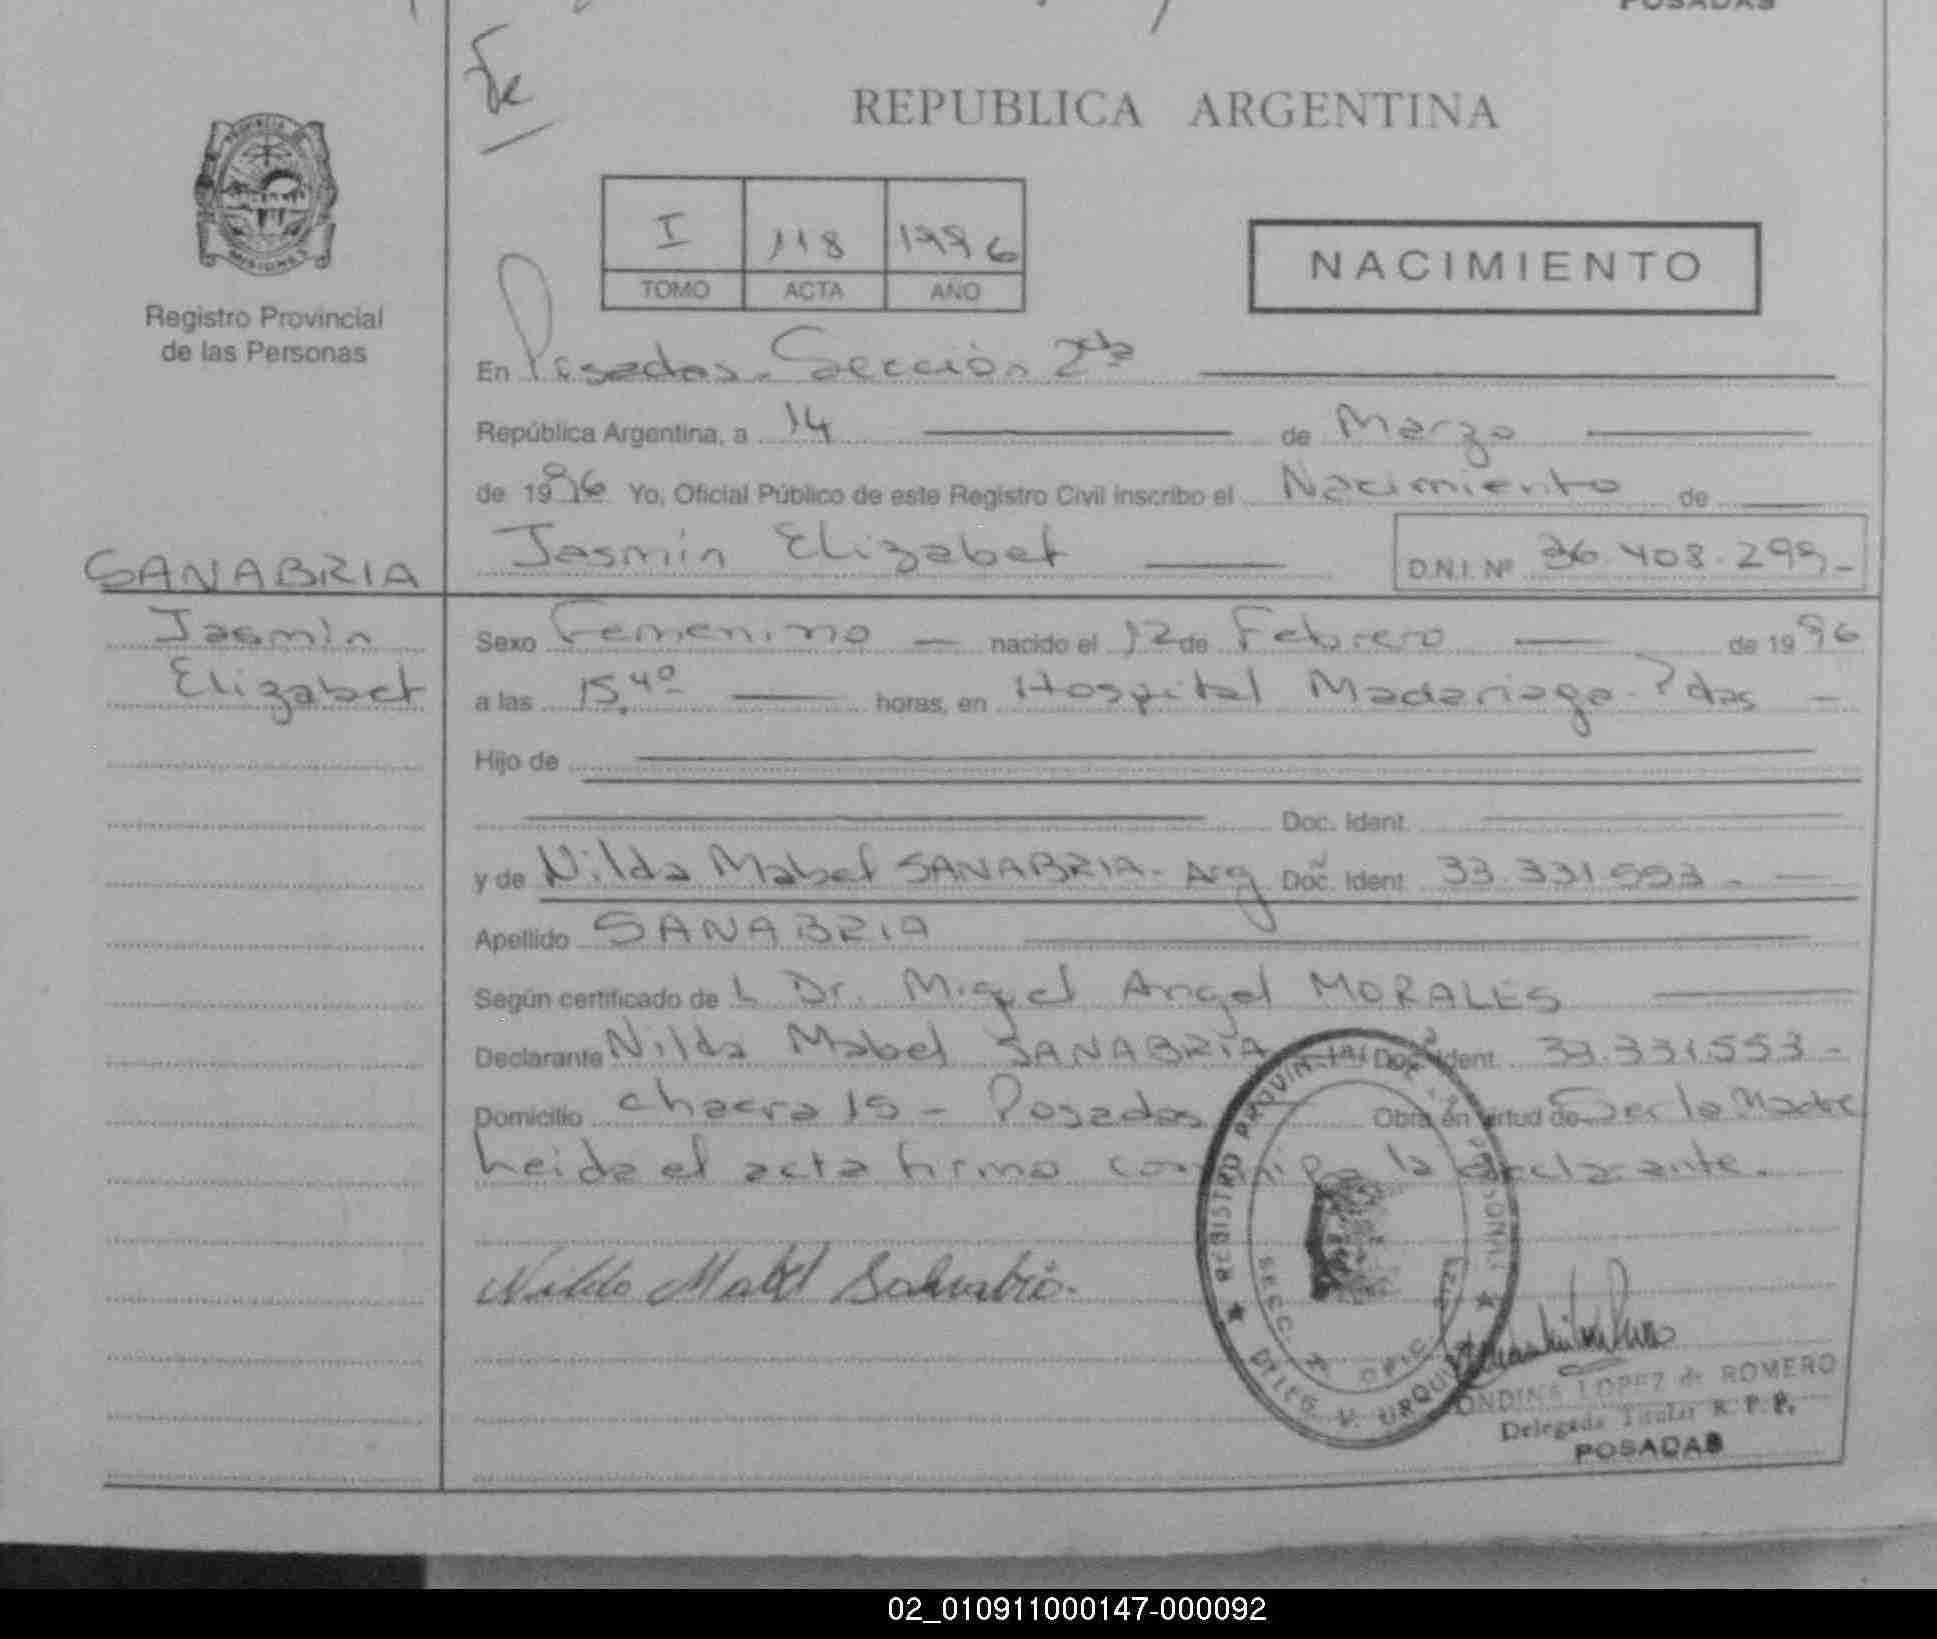 POSADAS
Fe
REPUBLICA ARGENTINA
PROVINCIA DE
MISIONES
Registro Provincial
de las Personas
I 118 1996
TOMO ACTA AÑO
NACIMIENTO
En Posadas. Sección 2da
República Argentina, a 14 de Marzo
de 1996 Yo, Oficial Público de este Registro Civil inscribo el Nacimiento de
Jasmín Elizabet D.N.I. Nº 36.408.299-
SANABRIA
Jasmín
Elizabet
Sexo Femenino nacido el 12 de Febrero de 1996
a las 15.40 horas, en Hospital Madariaga - Pdas
Hijo de
Doc. Ident.
y de Nilda Mabel SANABRIA - Arg Doc. Ident. 33.331.553.
Apellido SANABRIA
Según certificado de L Dr. Miguel Angel MORALES
Declarante Nilda Mabel SANABRIA Doc. Ident. 33.331.553-
Domicilio chacra 15 - Posadas Obra en virtud de Ser la Madre
Leida el acta firma conmigo la declarante.
Nilda Mabel Sanabria.
REGISTRO PROVINCIAL DE LAS PERSONAS
SECC. OFIC.
DELEG. V. URQUIZA
ONDINA LOPEZ de ROMERO
Delegada Titular R. P. P.
POSADAS
02_010911000147-000092